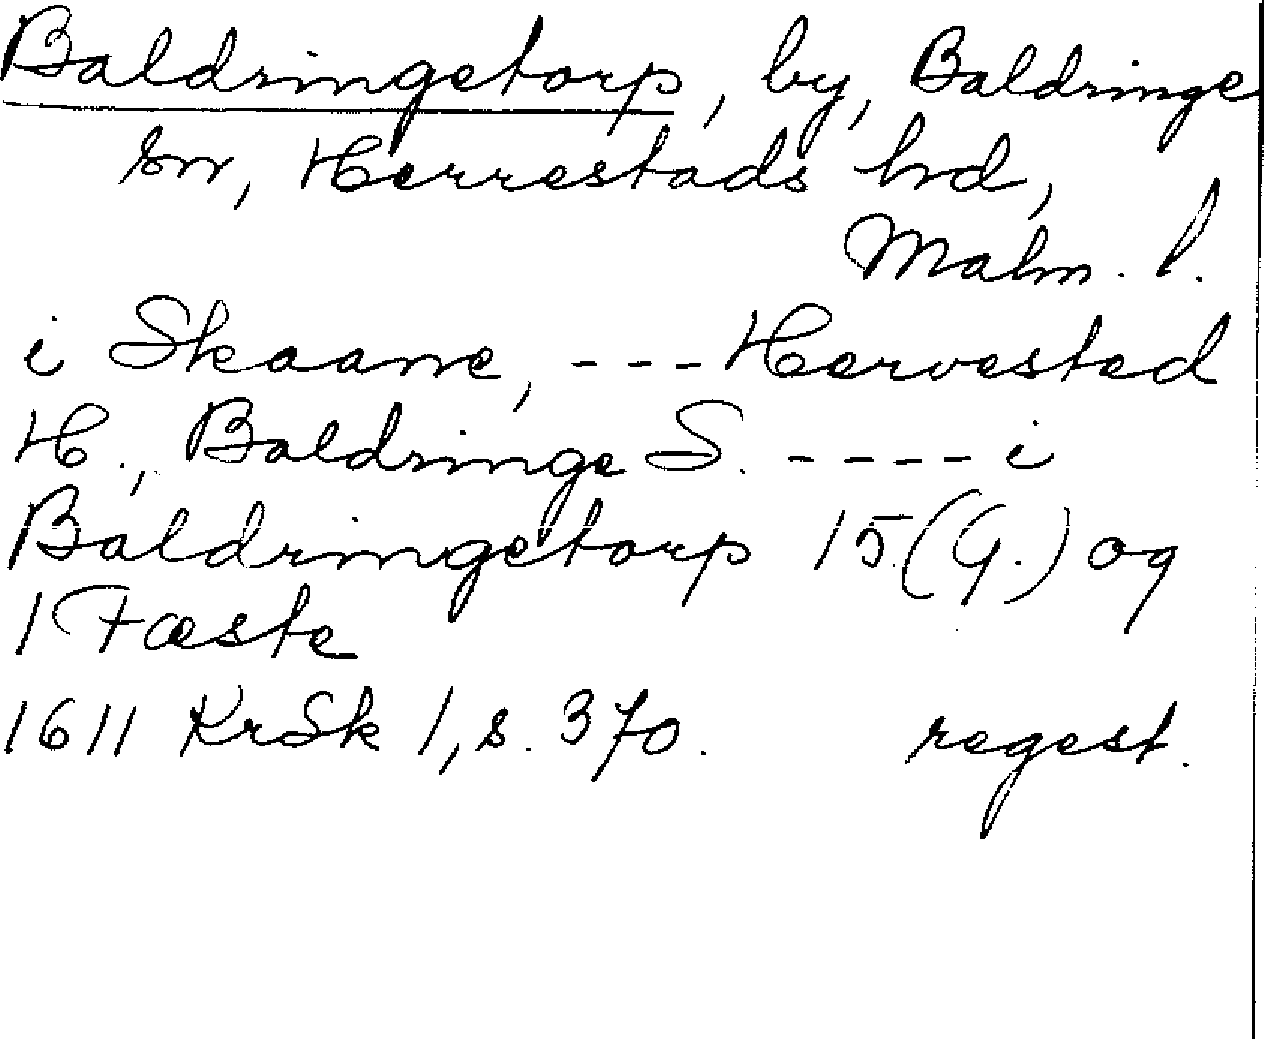 Baldringetorp, by, Baldringe
sn, Herrestads hd,
Malm. l.
i Skaane, --- Hervested
H., Baldringe S. ---- i
Baldringetorp 15 (G.) og
1 Fæste
1611 KrSk 1, s. 370. regest.